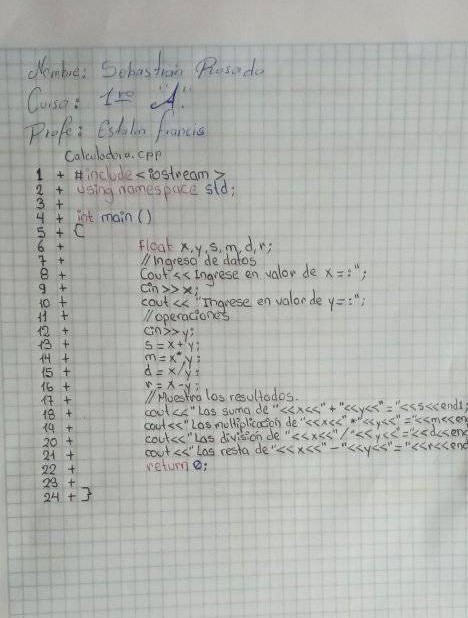 Nombre: Sebastian Rosado
Curso: 1ro "A"
Profe: Estalin francis
Calculadora.cpp
1 + #include<iostream>
2 + using namespace std;
3 +
4 + int main ()
5 + {
6 + float x,y,s,m,d,r;
7 + //Ingreso de datos
8 + Cout << Ingrese en valor de x=:";
9 + cin>>x;
10 + cout << "Ingrese en valor de y=:";
11 + //operaciones
12 + cin>>y;
13 + s=x+y;
14 + m=x*y;
15 + d=x/y;
16 + r=x-y;
17 + //Muestro los resultados.
18 + cout<<"Las suma de "<<x<<"+"<<y<<"="<<s<<endl;
19 + cout<<"Las multiplicacion de "<<x<<"*"<<y<<"="<<m<<en
20 + cout<<"Las division de "<<x<<"/"<<y<<"=<<d<<end
21 + cout<<"Las resta de "<<x<<"-"<<y<<"="<<r<<end
22 + return 0;
23 +
24 + }